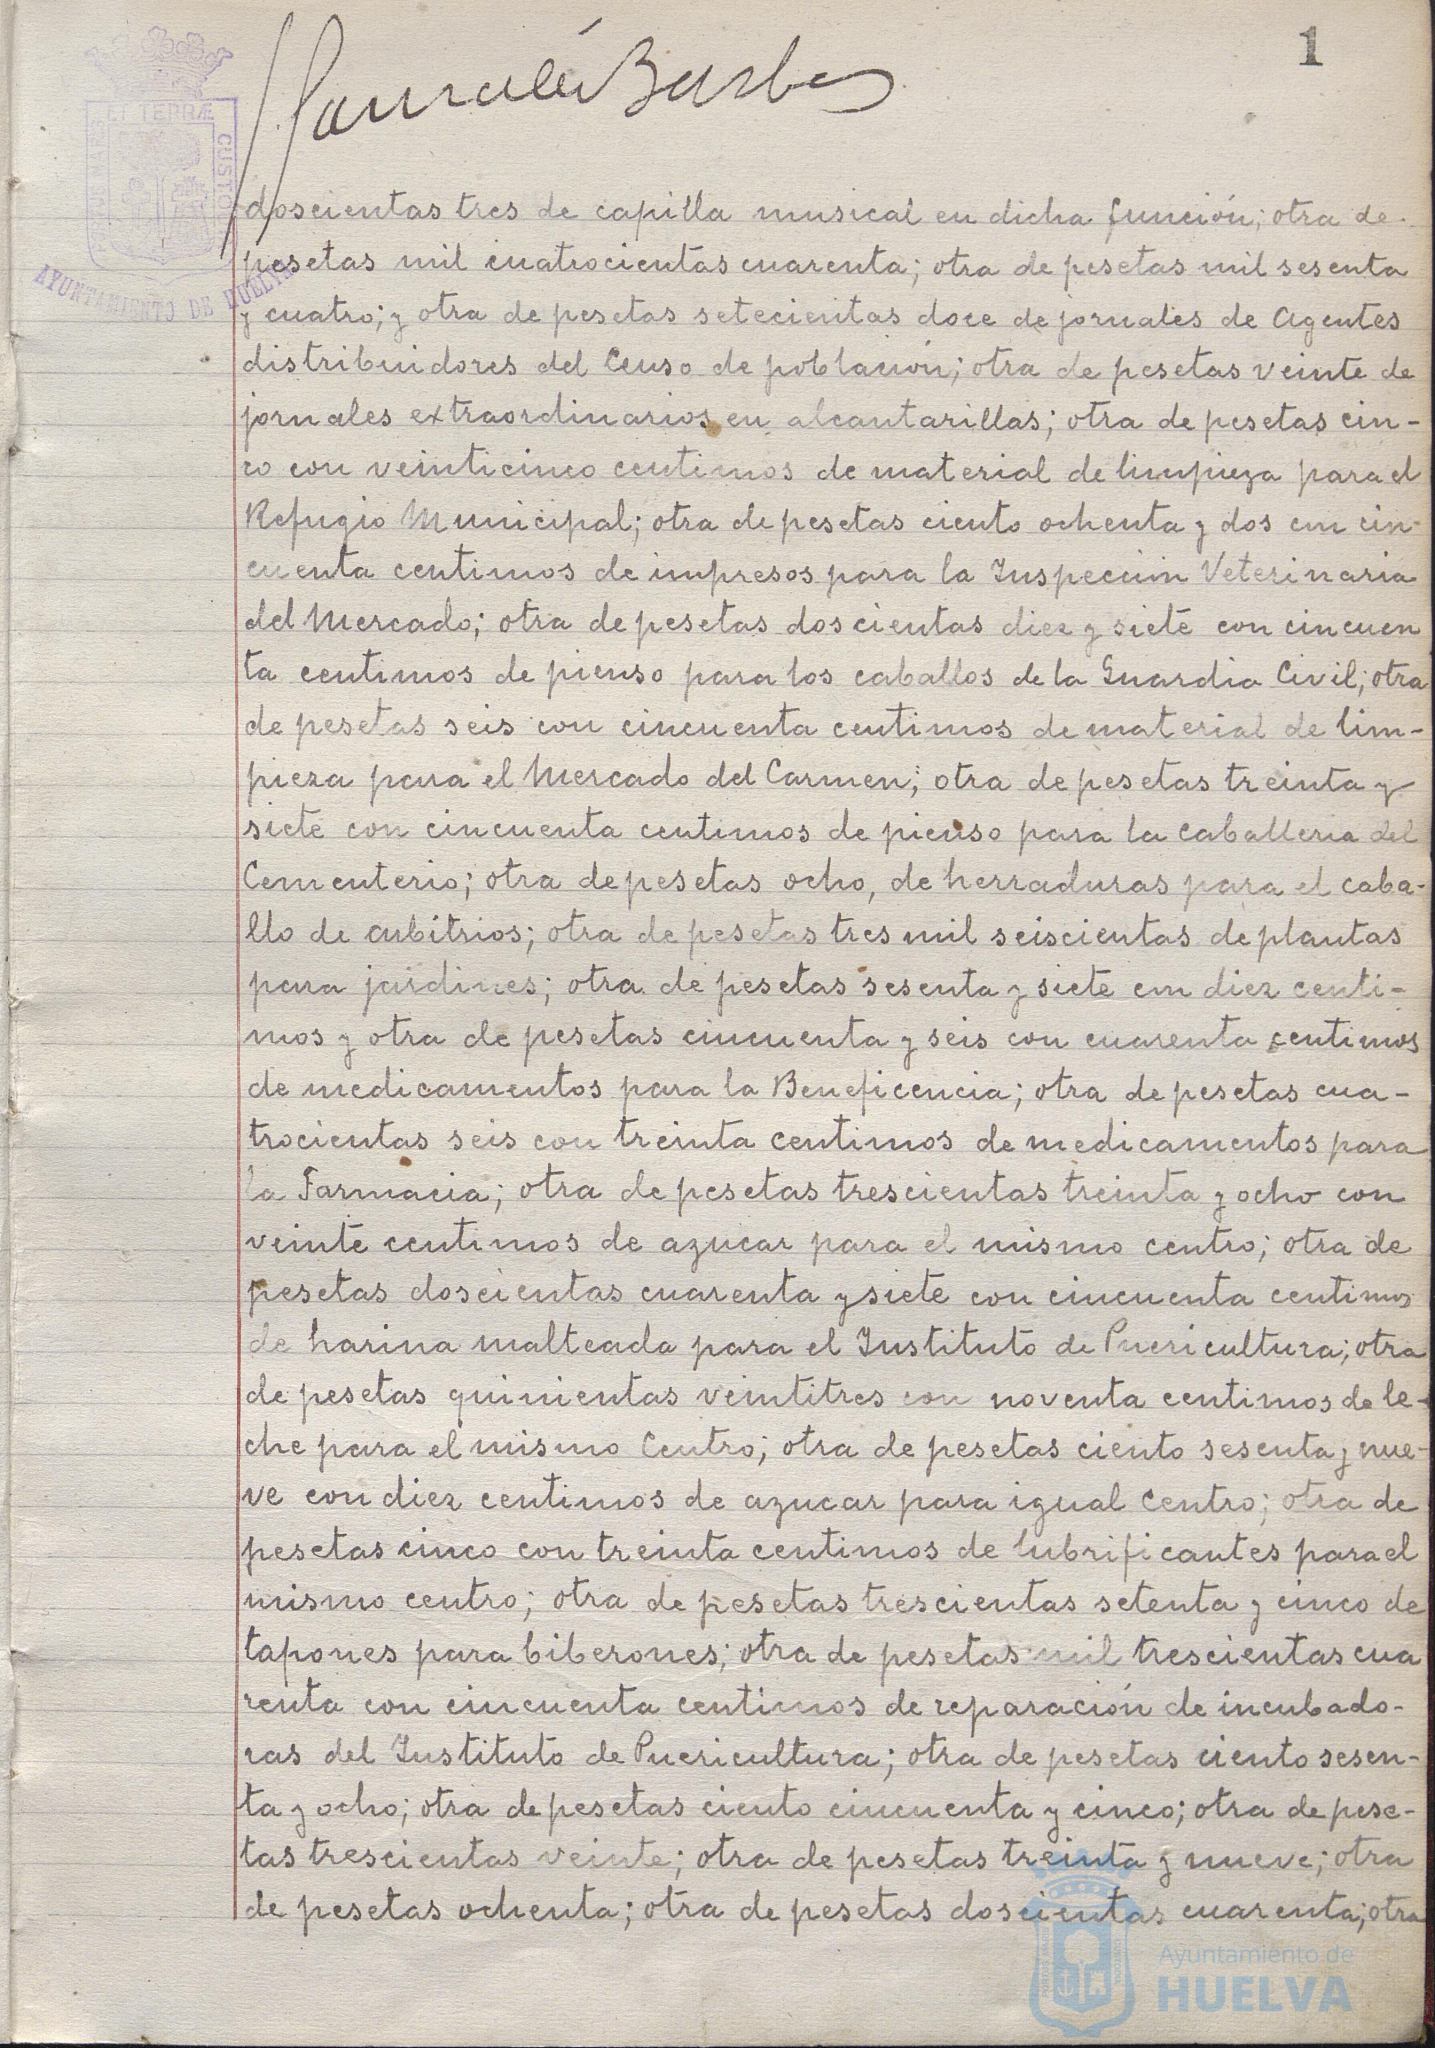 1
González Barba
ET TERRÆ
CUSTO
AYUNTAMIENTO DE HUELVA
doscientas tres de capilla musical en dicha función; otra de
pesetas mil cuatrocientas cuarenta; otra de pesetas mil sesenta
y cuatro; y otra de pesetas setecientas doce de jornales de Agentes
distribuidores del Censo de población; otra de pesetas veinte de
jornales extraordinarios en alcantarillas; otra de pesetas cin-
co con veinticinco centimos de material de limpieza para el
Refugio Municipal; otra de pesetas ciento ochenta y dos con cin-
cuenta centimos de impresos para la Inspección Veterinaria
del Mercado; otra de pesetas doscientas diez y siete con cincuen
ta centimos de pienso para los caballos de la Guardia Civil; otra
de pesetas seis con cincuenta centimos de material de lim-
pieza para el Mercado del Carmen; otra de pesetas treinta y
siete con cincuenta centimos de pienso para la caballeria del
Cementerio; otra de pesetas ocho, de herraduras para el caba-
llo de arbitrios; otra de pesetas tres mil seiscientas de plantas
para jardines; otra de pesetas sesenta y siete con diez centi-
mos y otra de pesetas cincuenta y seis con cuarenta centimos
de medicamentos para la Beneficencia; otra de pesetas cua-
trocientas seis con treinta centimos de medicamentos para
la Farmacia; otra de pesetas trescientas treinta y ocho con
veinte centimos de azucar para el mismo centro; otra de
pesetas doscientas cuarenta y siete con cincuenta centimos
de harina malteada para el Instituto de Puericultura; otra
de pesetas quinientas veintitres con noventa centimos de le-
che para el mismo Centro; otra de pesetas ciento sesenta y nue-
ve con diez centimos de azucar para igual Centro; otra de
pesetas cinco con treinta centimos de lubrificantes para el
mismo centro; otra de pesetas trescientas setenta y cinco de
tapones para biberones; otra de pesetas mil trescientas cua
renta con cincuenta centimos de reparación de incubado-
ras del Instituto de Puericultura; otra de pesetas ciento sesen-
ta y ocho; otra de pesetas ciento cincuenta y cinco; otra de pese-
tas trescientas veinte; otra de pesetas treinta y nueve; otra
de pesetas ochenta; otra de pesetas doscientas cuarenta; otra
Ayuntamiento de
HUELVA